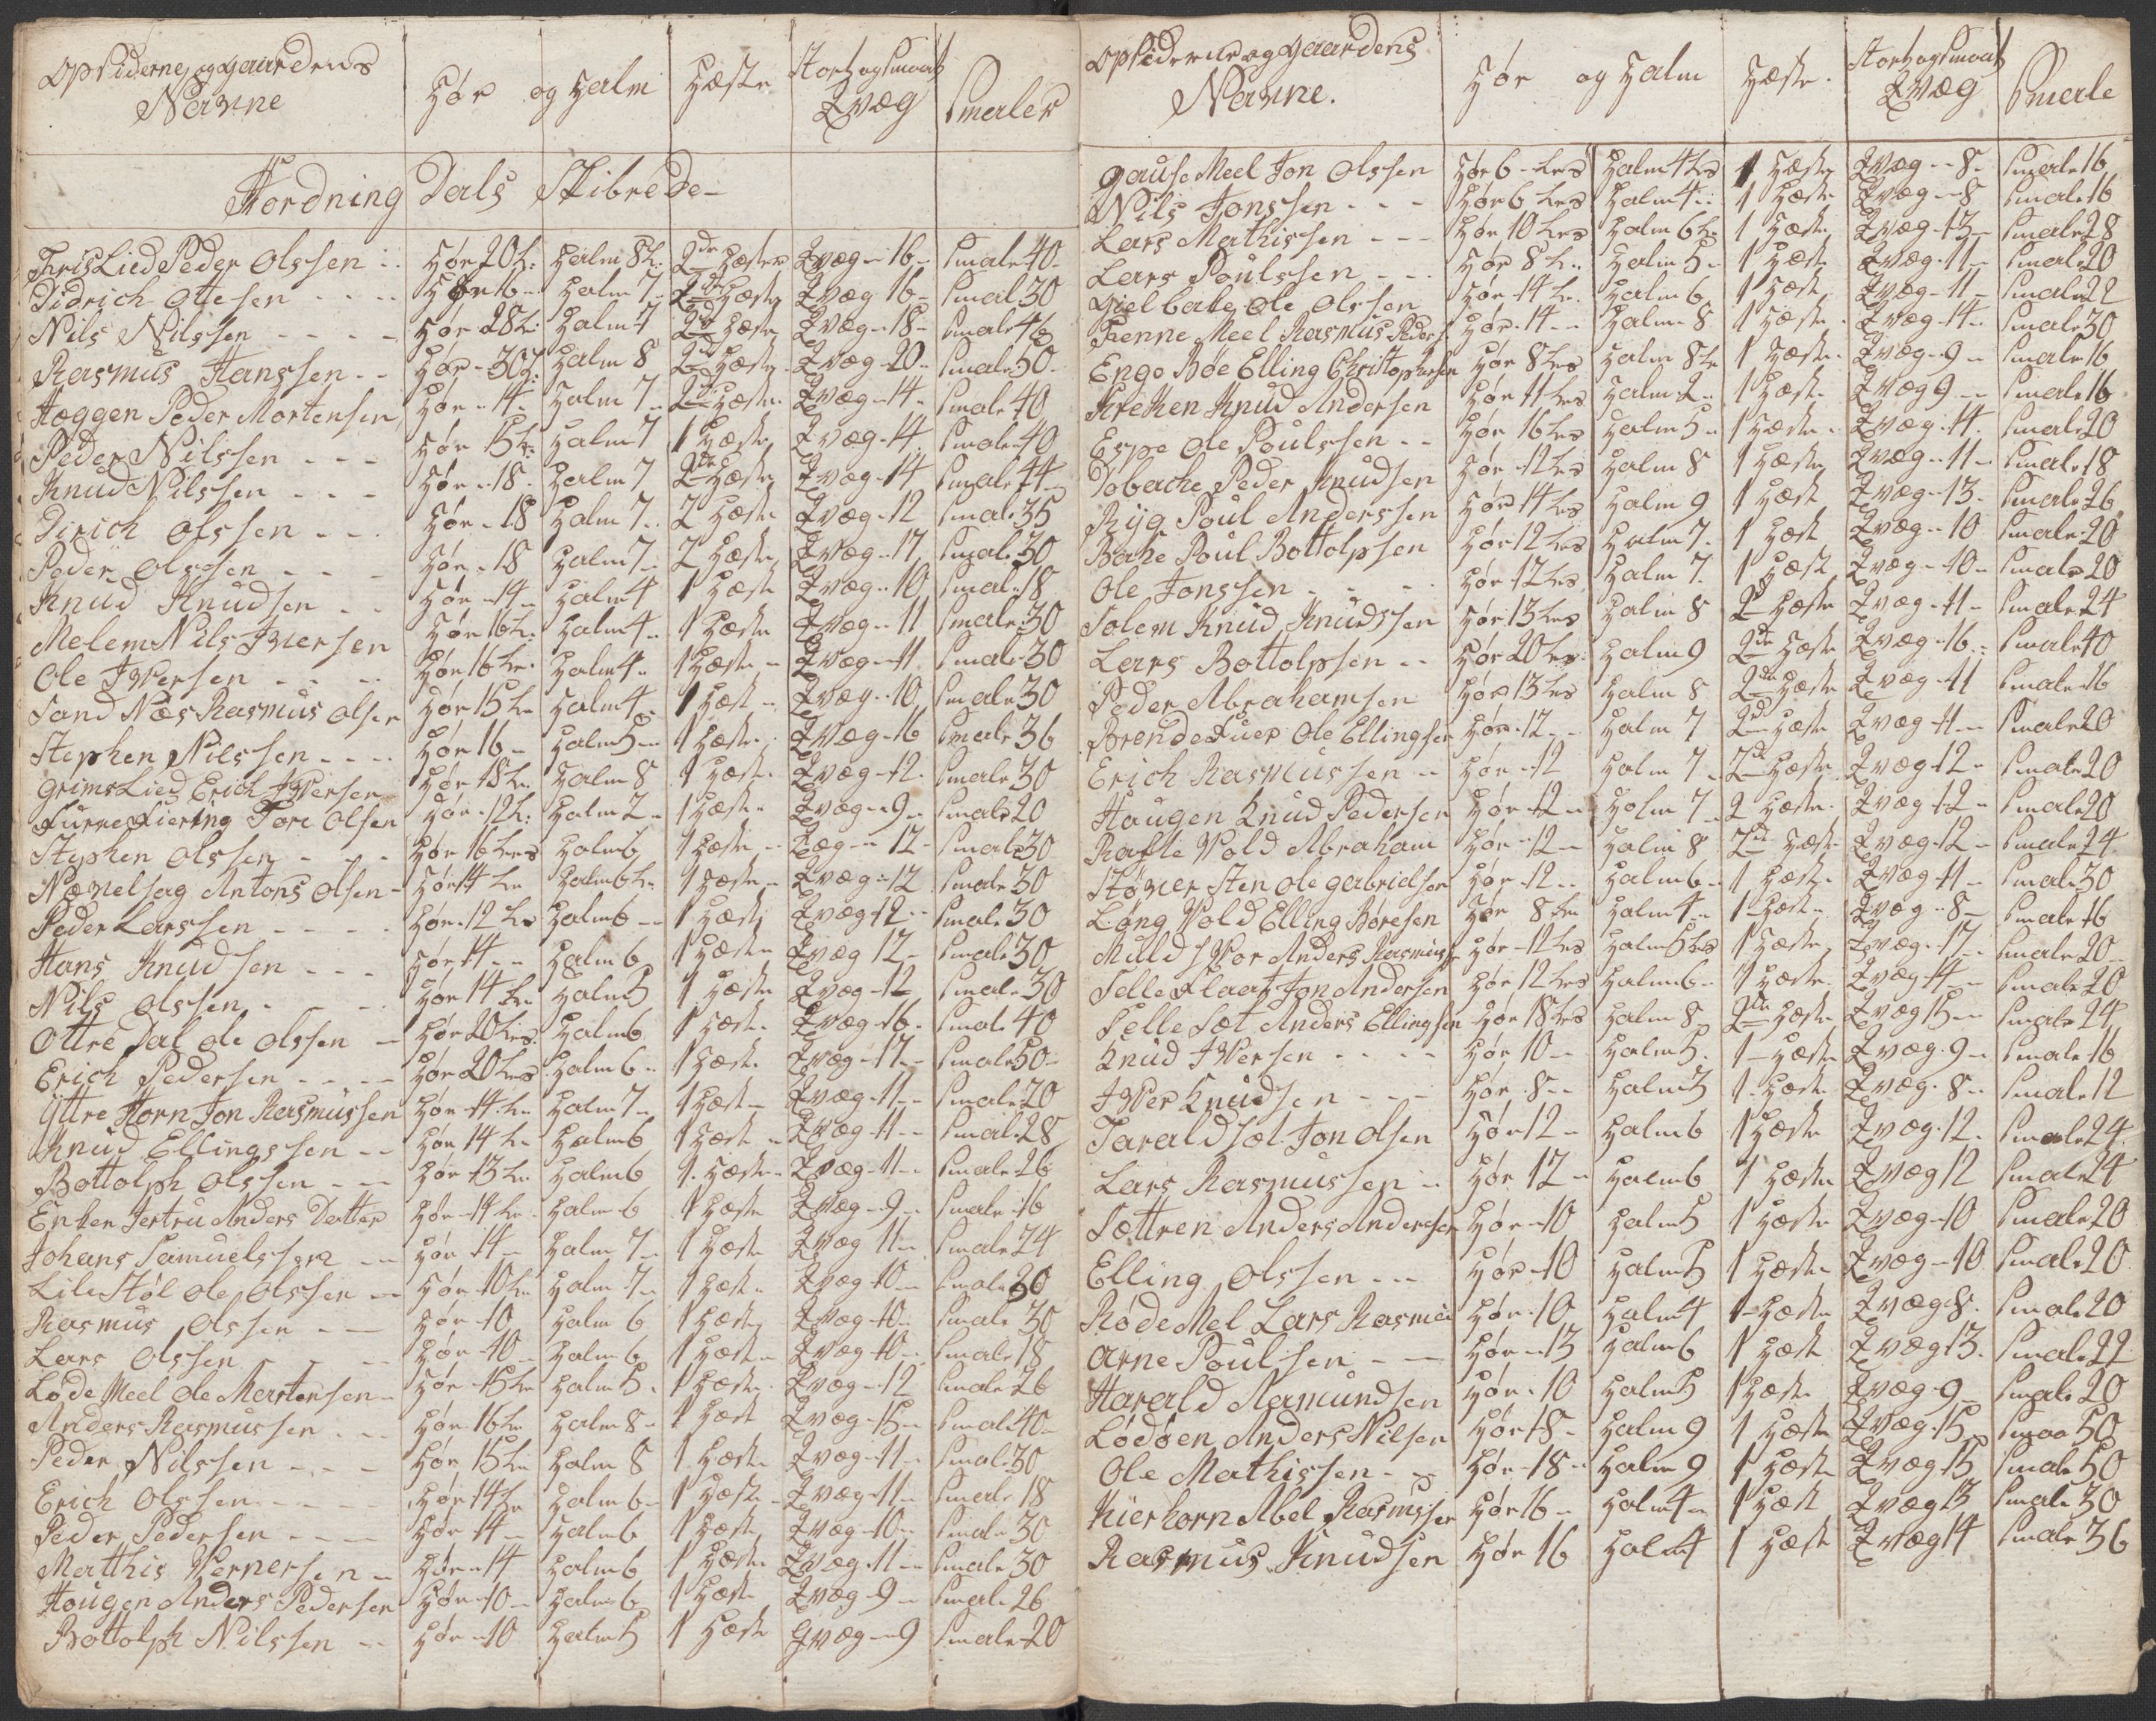 Opsiderne og gaardens Navne | Hør og Halm | Hæste | Stort og Smaat Qvæg | Smaler
Hordning Dals Skibrede
Friis Lied Peder Olssen | Hør 20 L: | Halm 8 L: | 2de Hæster | Qvæg 16 | Smale 40
Didrich Ottesen | Hør 16 | Halm 7 | 2de Hæste | Qvæg 16 | Smale 30
Nils Nilssen | Hør 28 L: | Halm 7 | 2de Hæste | Qvæg 18 | Smale 46
Rasmus Hanssen | Hør 30 L: | Halm 8 | 2de Hæste | Qvæg 20 | Smale 50
Hæggen Peder Mortensen | Hør 14 | Halm 7 | 2de Hæste | Qvæg 14 | Smale 40
Peder Nilssen | Hør 15 L: | Halm 7 | 1 Hæste | Qvæg 14 | Smale 40
Knud Nilssen | Hør 18 | Halm 7 | 2de Hæste | Qvæg 14 | Smale 44
Dirich Olssen | Hør 18 | Halm 7 | 2 Hæste | Qvæg 12 | Smale 35
Peder Olssen | Hør 18 | Halm 7 | 2 Hæste | Qvæg 17 | Smale 30
Knud Knudsen | Hør 14 | Halm 4 | 1 Hæste | Qvæg 10 | Smale 18
Melem Nils Iversen | Hør 16 L: | Halm 4 | 1 Hæste | Qvæg 11 | Smale 30
Ole Iversen | Hør 16 Le | Halm 4 | 1 Hæste | Qvæg 11 | Smale 30
Sand Næs Rasmus Olsen | Hør 15 Le | Halm 4 | 1 Hæst | Qvæg 10 | Smale 30
Stephen Nilssen | Hør 16 | Halm 5 | 1 Hæste | Qvæg 16 | Smale 36
Grims Lied Erich Iversen | Hør 18 Le | Halm 8 | 1 Hæste | Qvæg 12 | Smale 30
Furre Fiering Tore Olsen | Hør 12 L: | Halm 2 | 1 Hæste | Qvæg 9 | Smale 20
Stephen Olssen | Hør 16 Les | Halm 6 | 1 Hæste | Qvæg 12 | Smale 30
Nævelsag Antons Olsen | Hør 14 Le | Halm 6 L: | 1 Hæste | Qvæg 12 | Smale 30
Peder Larssen | Hør 12 Les | Halm 6 | 1 Hæste | Qvæg 12 | Smale 30
Hans Knudsen | Hør 14 | Halm 6 | 1 Hæste | Qvæg 12 | Smale 30
Nils Olssen | Hør 14 Le | Halm 5 | 1 Hæste | Qvæg 12 | Smale 30
Ottre Dal Ole Olssen | Hør 20 Les | Halm 6 | 1 Hæste | Qvæg 16 | Smale 40
Erich Pedersen | Hør 20 Les | Halm 6 | 1 Hæste | Qvæg 17 | Smale 50
Yttre Horn Jon Rasmussen | Hør 14 Le | Halm 7 | 1 Hæst | Qvæg 11 | Smale 20
Knud Ellingssen | Hør 14 Le | Halm 6 | 1 Hæste | Qvæg 11 | Smale 28
Bottolph Olssen | Hør 13 Le | Halm 6 | 1 Hæste | Qvæg 11 | Smale 26
Enken Jertru Anders Datter | Hør 14 Le | Halm 6 | 1 Hæste | Qvæg 9 | Smale 16
Johans Samuelssen | Hør 14 | Halm 7 | 1 Hæste | Qvæg 11 | Smale 24
Lile Støl Ole Olssen | Hør 10 Le | Halm 7 | 1 Hæste | Qvæg 10 | Smale 20
Rasmus Olssen | Hør 10 | Halm 6 | 1 Hæste | Qvæg 10 | Smale 30
Lars Olssen | Hør 10 | Halm 6 | 1 Hæste | Qvæg 10 | Smale 18
Løde Meel Ole Mertensen | Hør 15 Le | Halm 5 | 1 Hæste | Qvæg 12 | Smale 26
Anders Rasmussen | Hør 16 Le | Halm 8 | 1 Hæst | Qvæg 15 | Smale 40
Peder Nilssen | Hør 15 Le | Halm 8 | 1 Hæste | Qvæg 11 | Smale 30
Erich Olssen | Hør 14 Le | Halm 6 | 1 Hæste | Qvæg 11 | Smale 18
Peder Pedersen | Hør 14 | Halm 6 | 1 Hæste | Qvæg 10 | Smale 30
Matthis Vernersen | Hør 14 | Halm 6 | 1 Hæste | Qvæg 11 | Smale 30
Hougen Anders Pedersen | Hør 10 | Halm 6 | 1 Hæste | Qvæg 9 | Smale 26
Bottolph Nilssen | Hør 10 | Halm 5 | 1 Hæste | Qvæg 9 | Smale 20
Opsiderne og gaardens Navne. | Hør og Halm | Hæste | Stort og Smaat Qvæg | Smale
Gause Meel Jon Olssen | Hør 6 Les | Halm 4 Les | 1 Hæste | Qvæg 8 | Smale 16
Nils Jonssen | Hør 6 Les | Halm 4 | 1 Hæste | Qvæg 8 | Smale 16
Lars Mathissen | Hør 10 Les | Halm 6 Le | 1 Hæste | Qvæg 13 | Smale 28
Lars Poulssen | Hør 8 L: | Halm 5 | 1 Hæste | Qvæg 11 | Smale 20
Ole Olssen | Hør 14 Le | Halm 6 | 1 Hæste | Qvæg 11 | Smale 22
Tenne Meel Rasmus Peders | Hør 14 | Halm 8 | 1 Hæste | Qvæg 14 | Smale 30
Enge Bøe Elling Christophersen | Hør 8 Les | Halm 8 Le | 1 Hæste | Qvæg 9 | Smale 16
Knud Andersen | Hør 11 Les | Halm 2 | 1 Hæste | Qvæg 9 | Smale 16
Espe Ole Poulssen | Hør 16 Les | Halm 5 | 1 Hæste | Qvæg 14 | Smale 20
Tobache Peder Knudsen | Hør 12 Les | Halm 8 | 1 Hæste | Qvæg 11 | Smale 18
Ryg Poul Anderssen | Hør 14 Les | Halm 9 | 1 Hæst | Qvæg 13 | Smale 26
Bahe Poul Bottolpsen | Hør 12 Les | Halm 7 | 1 Hæst | Qvæg 10 | Smale 20
Ole Jonssen | Hør 12 Les | Halm 7 | 1 Hæst | Qvæg 10 | Smale 20
Solem Knud Knudssen | Hør 13 Les | Halm 8 | 2 Hæste | Qvæg 11 | Smale 24
Lars Bottolpsen | Hør 20 Les | Halm 9 | 2de Hæste | Qvæg 16 | Smale 40
Peder Abrahamsen | Hør 13 Les | Halm 8 | 2de Hæste | Qvæg 11 | Smale 16
Brendefuer Ole Ellingsen | Hør 12 | Halm 7 | 2d Hæste | Qvæg 11 | Smale 20
Erich Rasmussen | Hør 12 | Halm 7 | 2d Hæste | Qvæg 12 | Smale 20
Haugen Knud Pedersen | Hør 12 | Halm 7 | 2 Hæste | Qvæg 12 | Smale 20
Rafte Vold Abraham | Hør 12 | Halm 8 | 2de Hæste | Qvæg 12 | Smale 24
Støver Sten Ole Gabrielsen | Hør 12 | Halm 6 | 1 Hæste | Qvæg 11 | Smale 30
Lang Vold Elling Børesen | Hør 8 Le | Halm 4 | 1 Hæste | Qvæg 8 | Smale 16
Muldsvor Anders Rasmuss | Hør 12 Les | Halm 5 Les | 1 Hæste | Qvæg 17 | Smale 20
Selle Flaat Jon Andersen | Hør 12 Les | Halm 6 | 1 Hæste | Qvæg 14 | Smale 20
Selle Sæt Anders Ellingsen | Hør 18 Les | Halm 8 | 2de Hæste | Qvæg 15 | Smale 24
Knud Iversen | Hør 10 | Halm 5 | 1 Hæste | Qvæg 9 | Smale 16
Iver Knudsen | Hør 8 | Halm 5 | 1 Hæste | Qvæg 8 | Smale 12
Taraldsæt Jon Olsen | Hør 12 | Halm 6 | 1 Hæste | Qvæg 12 | Smale 24
Lars Rasmussen | Hør 12 | Halm 6 | 1 Hæste | Qvæg 12 | Smale 24
Sættren Anders Anderssen | Hør 10 | Halm 5 | 1 Hæste | Qvæg 10 | Smale 20
Elling Olssen | Hør 10 | Halm 5 | 1 Hæste | Qvæg 10 | Smale 20
Røde Mel Lars Rasmus | Hør 10 | Halm 4 | 1 Hæste | Qvæg 8 | Smale 20
Arne Poulsen | Hør 13 | Halm 6 | 1 Hæst | Qvæg 13 | Smale 22
Harald Aamundsen | Hør 10 | Halm 5 | 1 Hæste | Qvæg 9 | Smale 20
Lødøen Anders Nilsen | Hør 18 | Halm 9 | 1 Hæste | Qvæg 15 | Smaa 50
Ole Mathissen | Hør 18 | Halm 9 | 1 Hæste | Qvæg 15 | Smale 50
Hierhorn Abel Rasmussen | Hør 16 | Halm 4 | 1 Hæst | Qvæg 13 | Smale 30
Rasmus Knudsen | Hør 16 | Halm 4 | 1 Hæst | Qvæg 14 | Smale 36